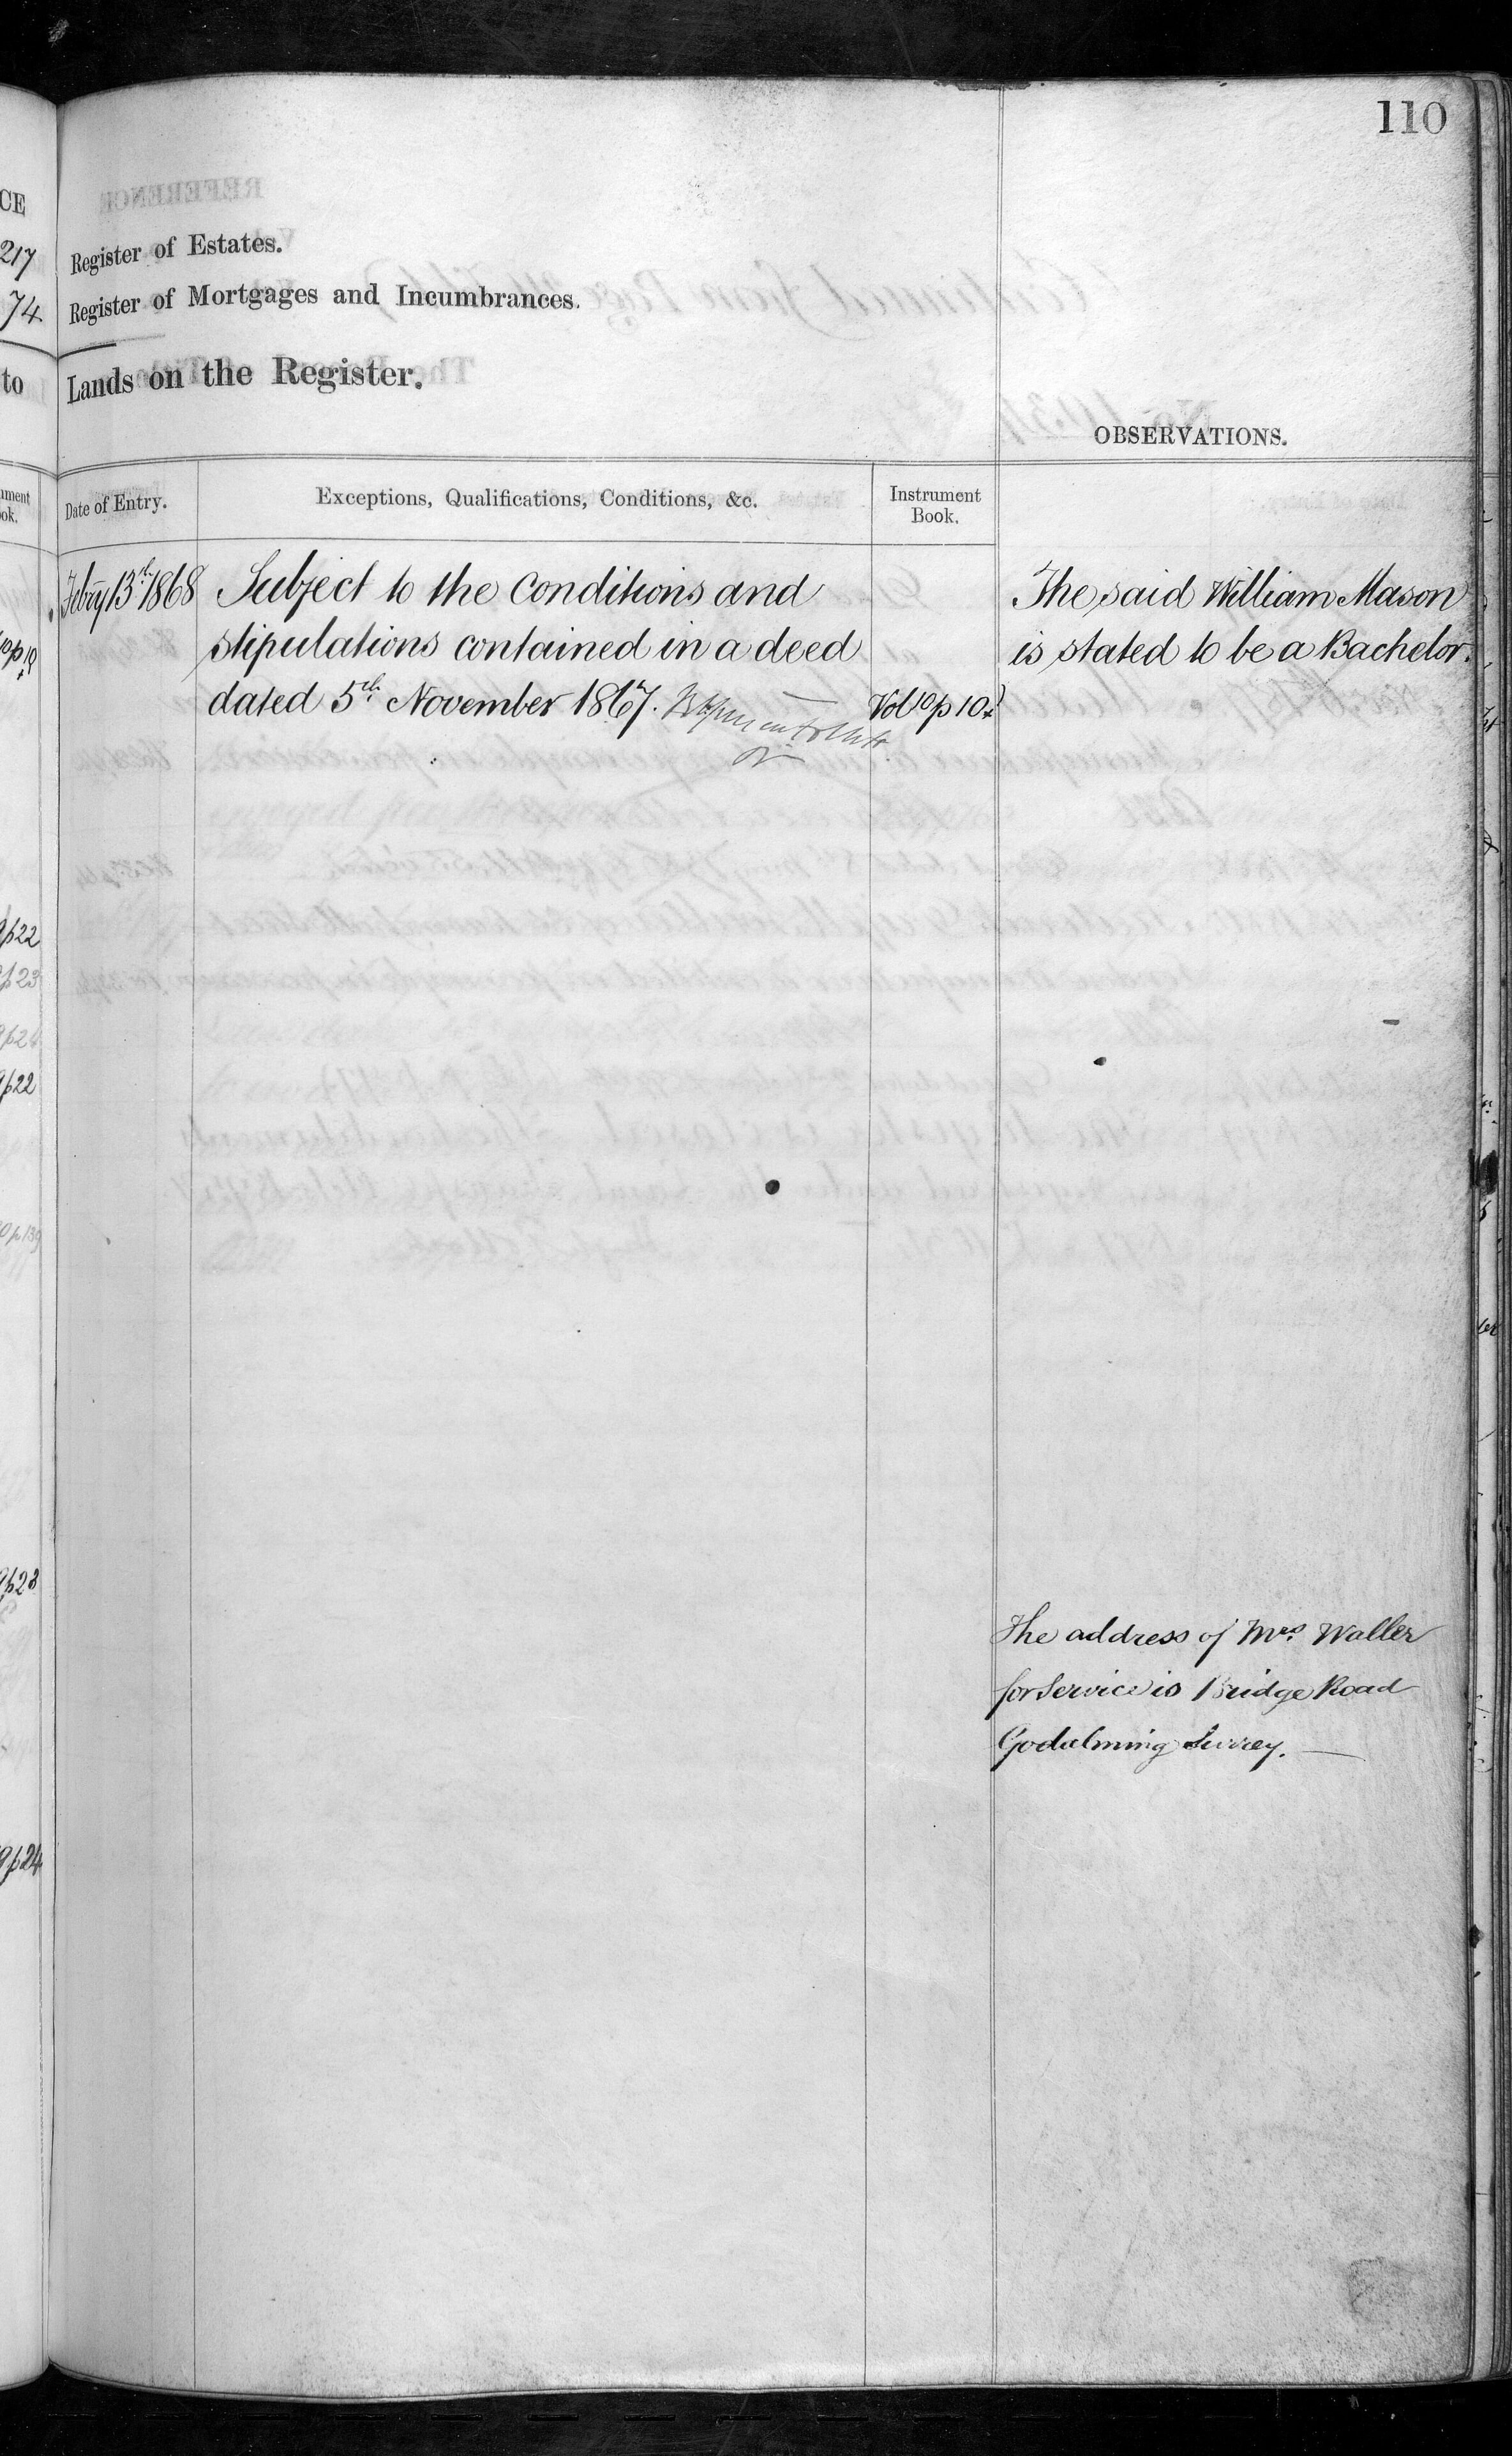 110
CE
217
74
to
Register of Estates.
Register of Mortgages and Incumbrances.
Lands on the Register.
OBSERVATIONS.
Date of Entry.
Exceptions, Qualifications, Conditions, &c.
Instrument
Book.
Febry 13th 1868
Subject to the Conditions and
stipulations contained in a deed
dated 5th November 1867.
Vol 10 p 10
The said William Mason
is stated to be a Bachelor.
p22
p23
p24
p22
p23
p24
The address of Mrs. Waller
for Service is Bridge Road
Godalming Surrey.